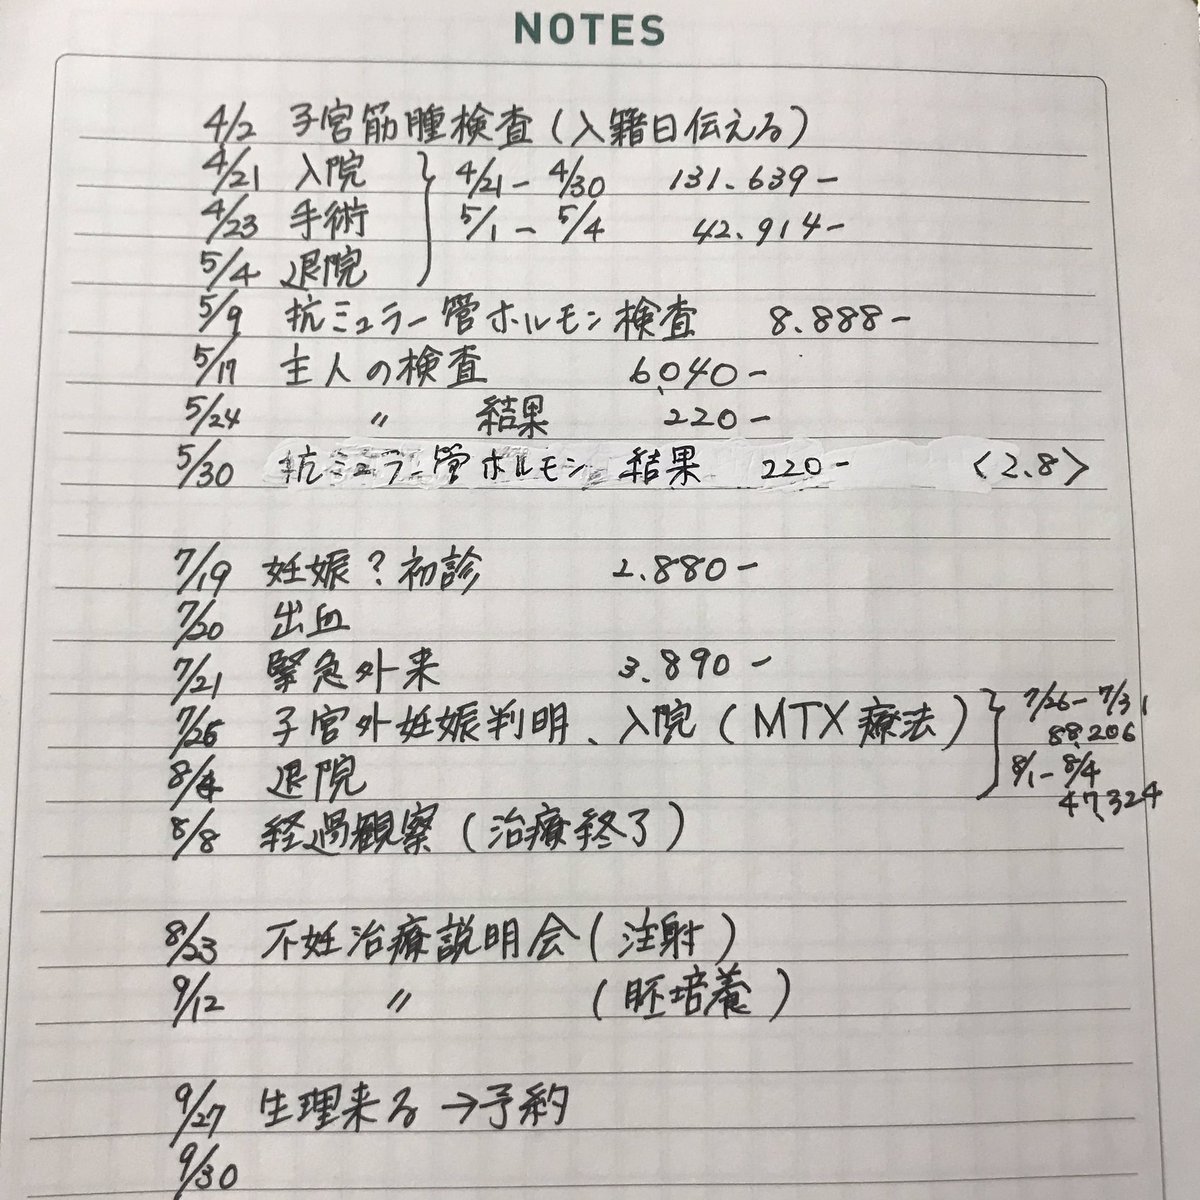 NOTES
4/2 子宮筋腫検査(入籍日伝える)
4/21 入院 4/21- 4/30 131.639-
4/23 手術 5/1- 5/4 42.914-
5/4 退院
5/9 抗ミュラー管ホルモン検査 8.888-
5/17 主人の検査 6,040-
5/24 〃 結果 220-
5/30 抗ミュラー管ホルモン 結果 220- <2.8>
7/19 妊娠?初診 2.880-
7/20 出血
7/21 緊急外来 3.890-
7/26 子宮外妊娠判明、入院(MTX療法) 7/26- 7/31
88,206
8/4 退院 8/1- 8/4
47,324
8/8 経過観察(治療終了)
8/23 不妊治療説明会(注射)
9/12 〃 (胚培養)
9/27 生理来る→予約
9/30